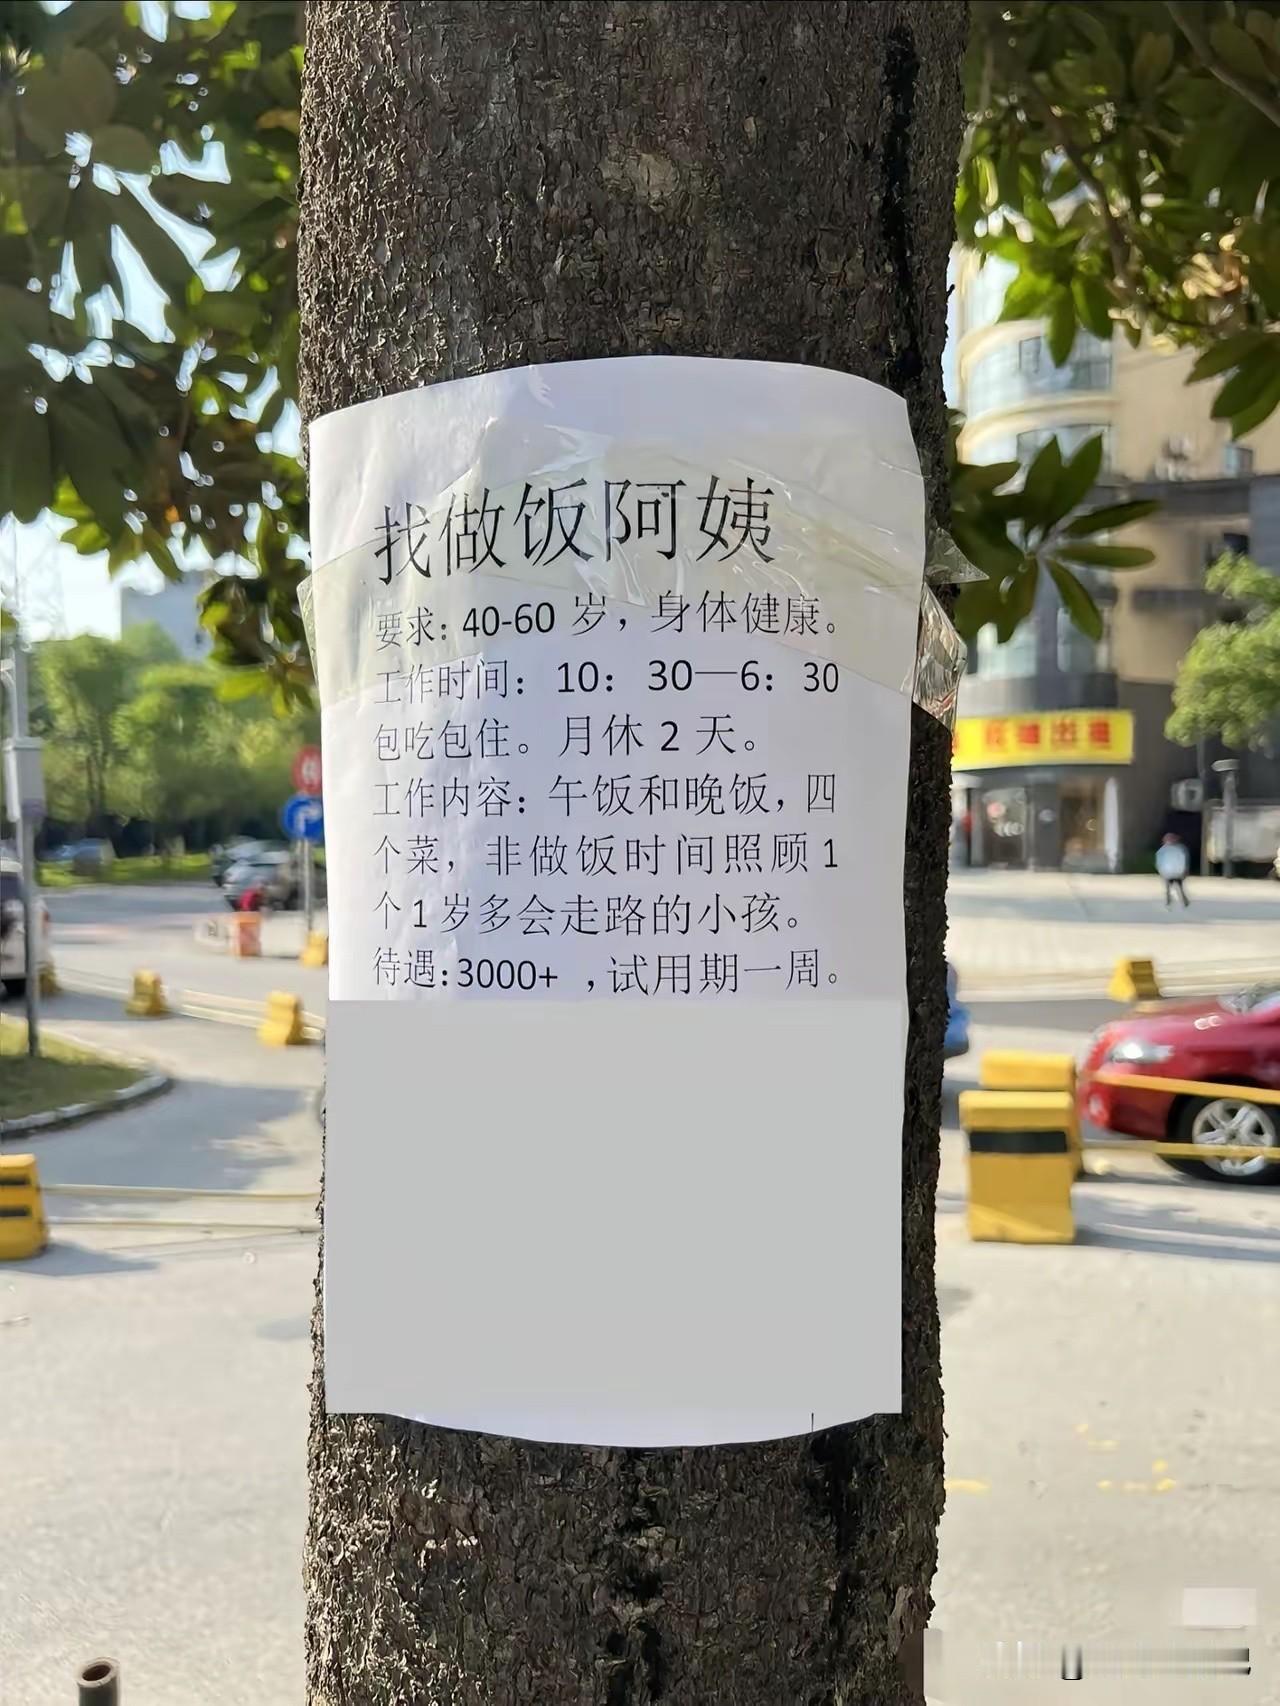 找做饭阿姨
要求: 40-60 岁，身体健康。
工作时间：10：30—6：30
包吃包住。月休 2 天。
工作内容：午饭和晚饭，四
个菜，非做饭时间照顾 1
个 1 岁多会走路的小孩。
待遇:3000+ ,试用期一周。